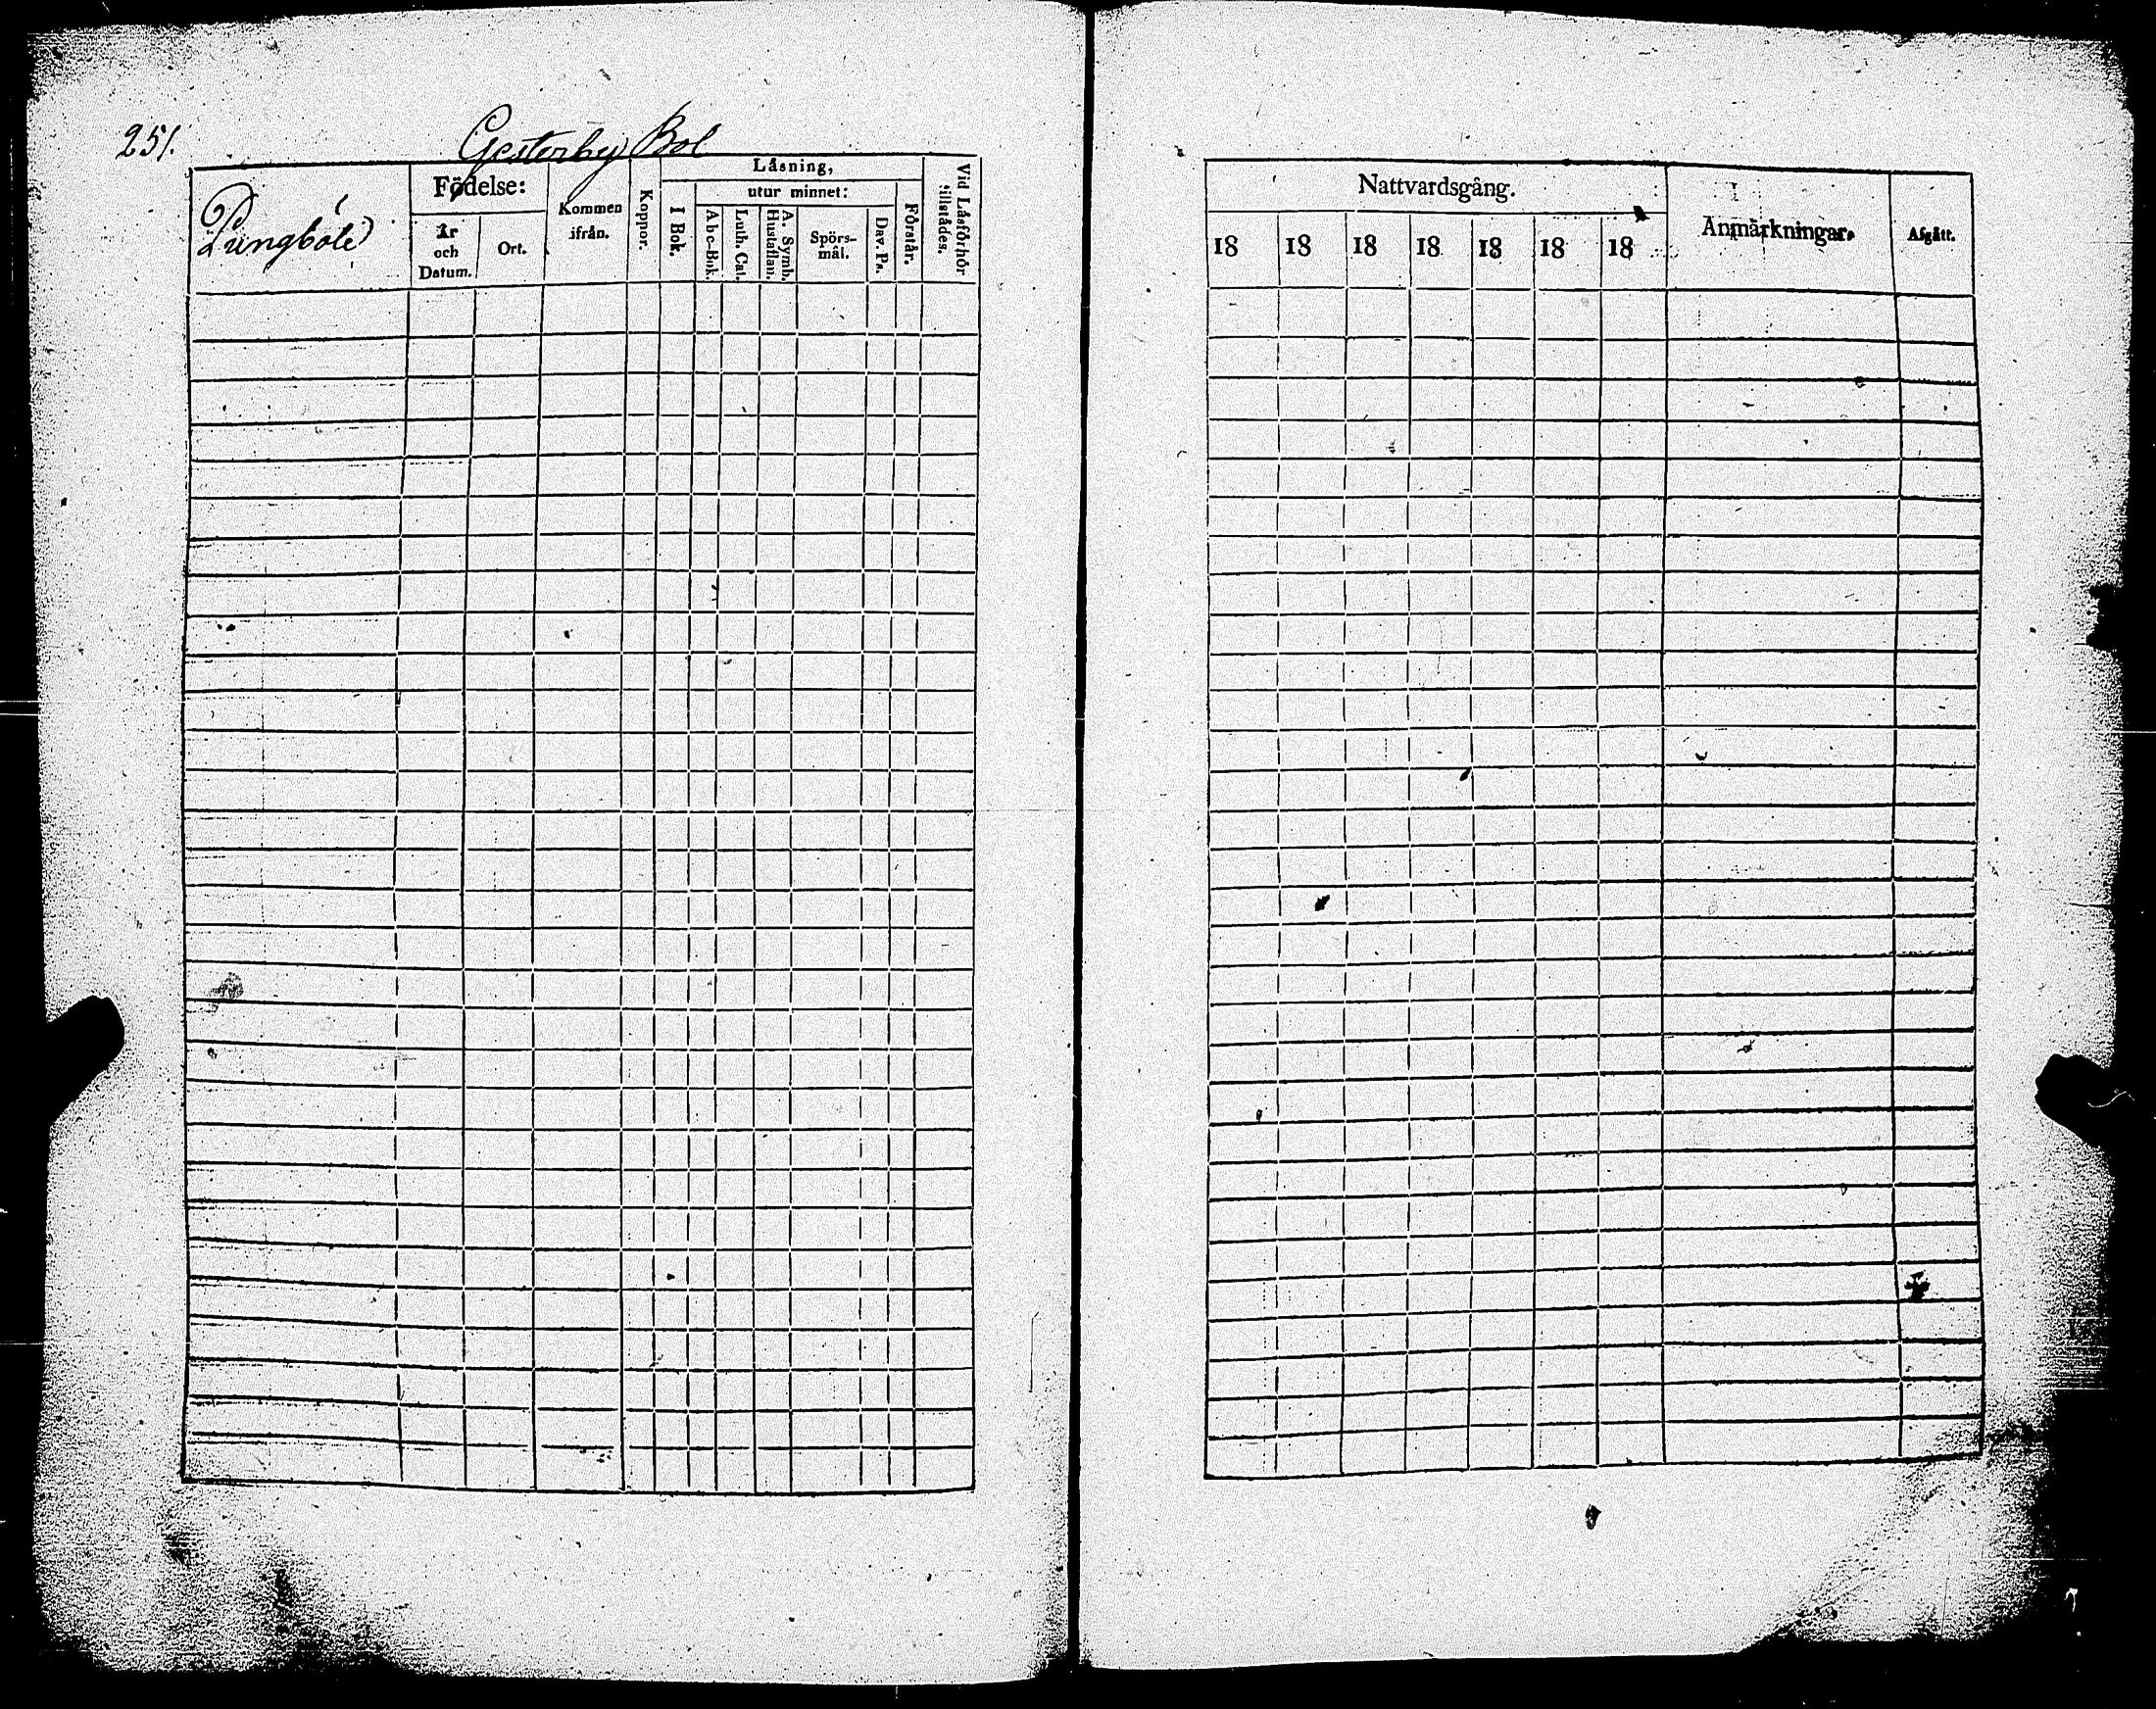 251.
Gesterby Bol
Pungböle
Födelse:
År
och
Datum.
Ort.
Kommen
ifrån.
Koppor.
Läsning,
I Bok.
utur minnet:
A b c-Bok.
Luth. Cat.
A. Symb.
Hustaflan.
Spörs-
mål.
Dav. Ps.
Förstår.
Vid Läsförhör
tillstädes.
Nattvardsgång.
18 18 18 18 18 18 18
Anmärkningar.
Afgått.